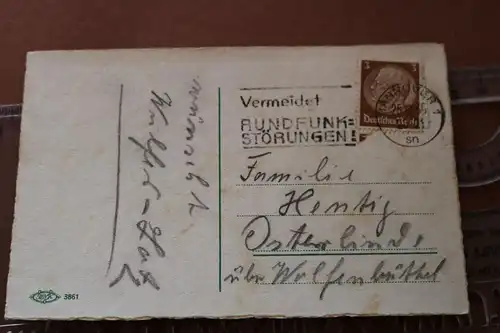 wünscht
Vermeidet
RUNDFUNK=
STÖRUNGEN!
3
3
Deutsches Reich
sn
Familie
Hentig
Osterlinde
über Wolfenbüttel
3861